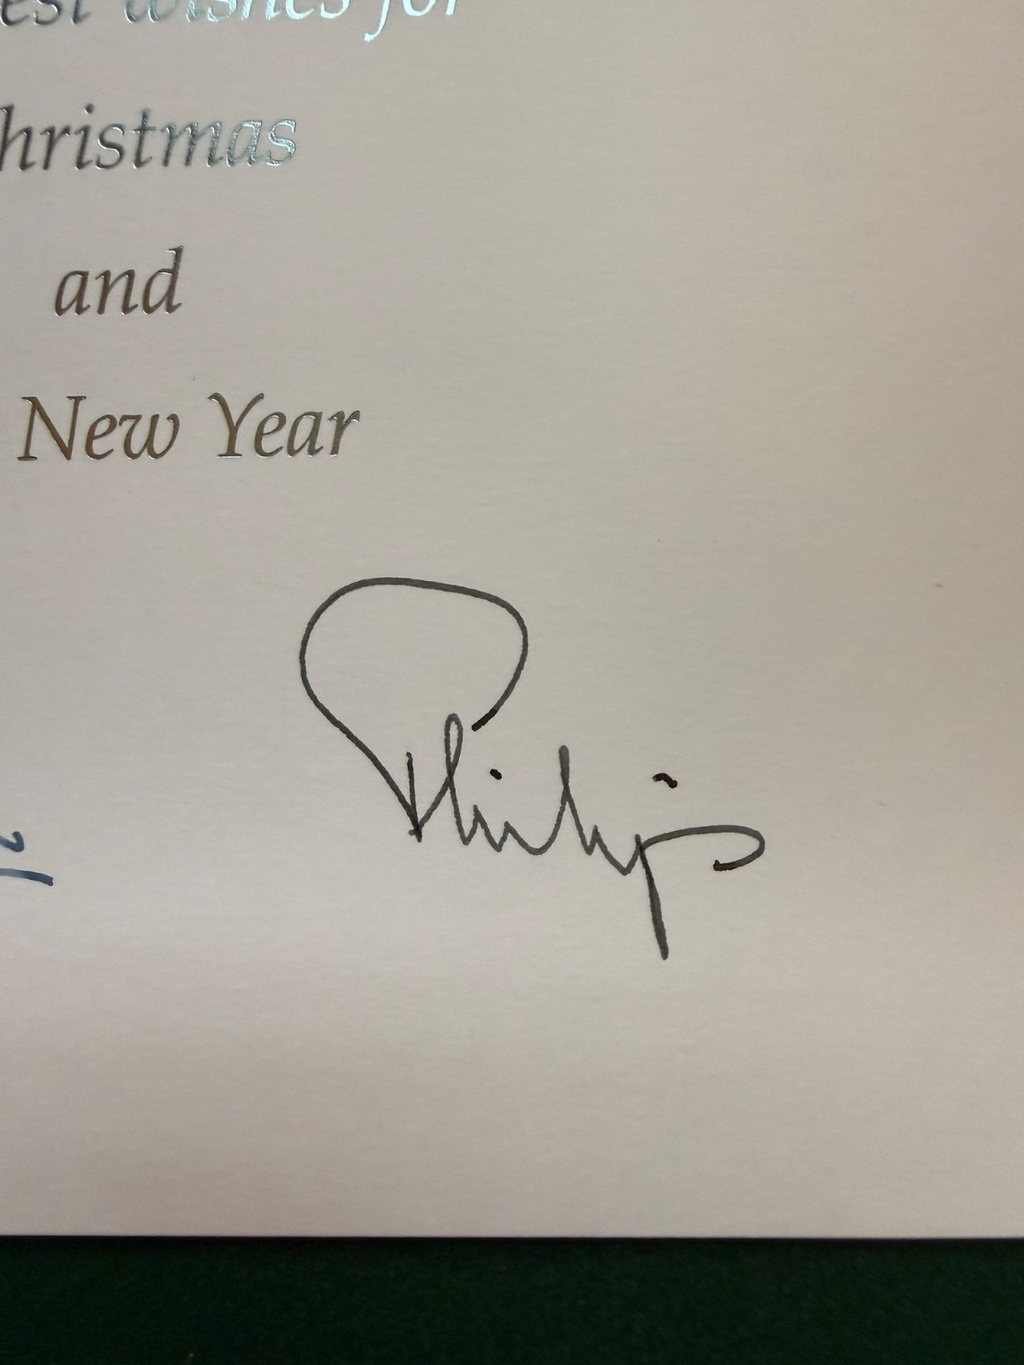 est wishes for
hristmas
and
New Year
Philip